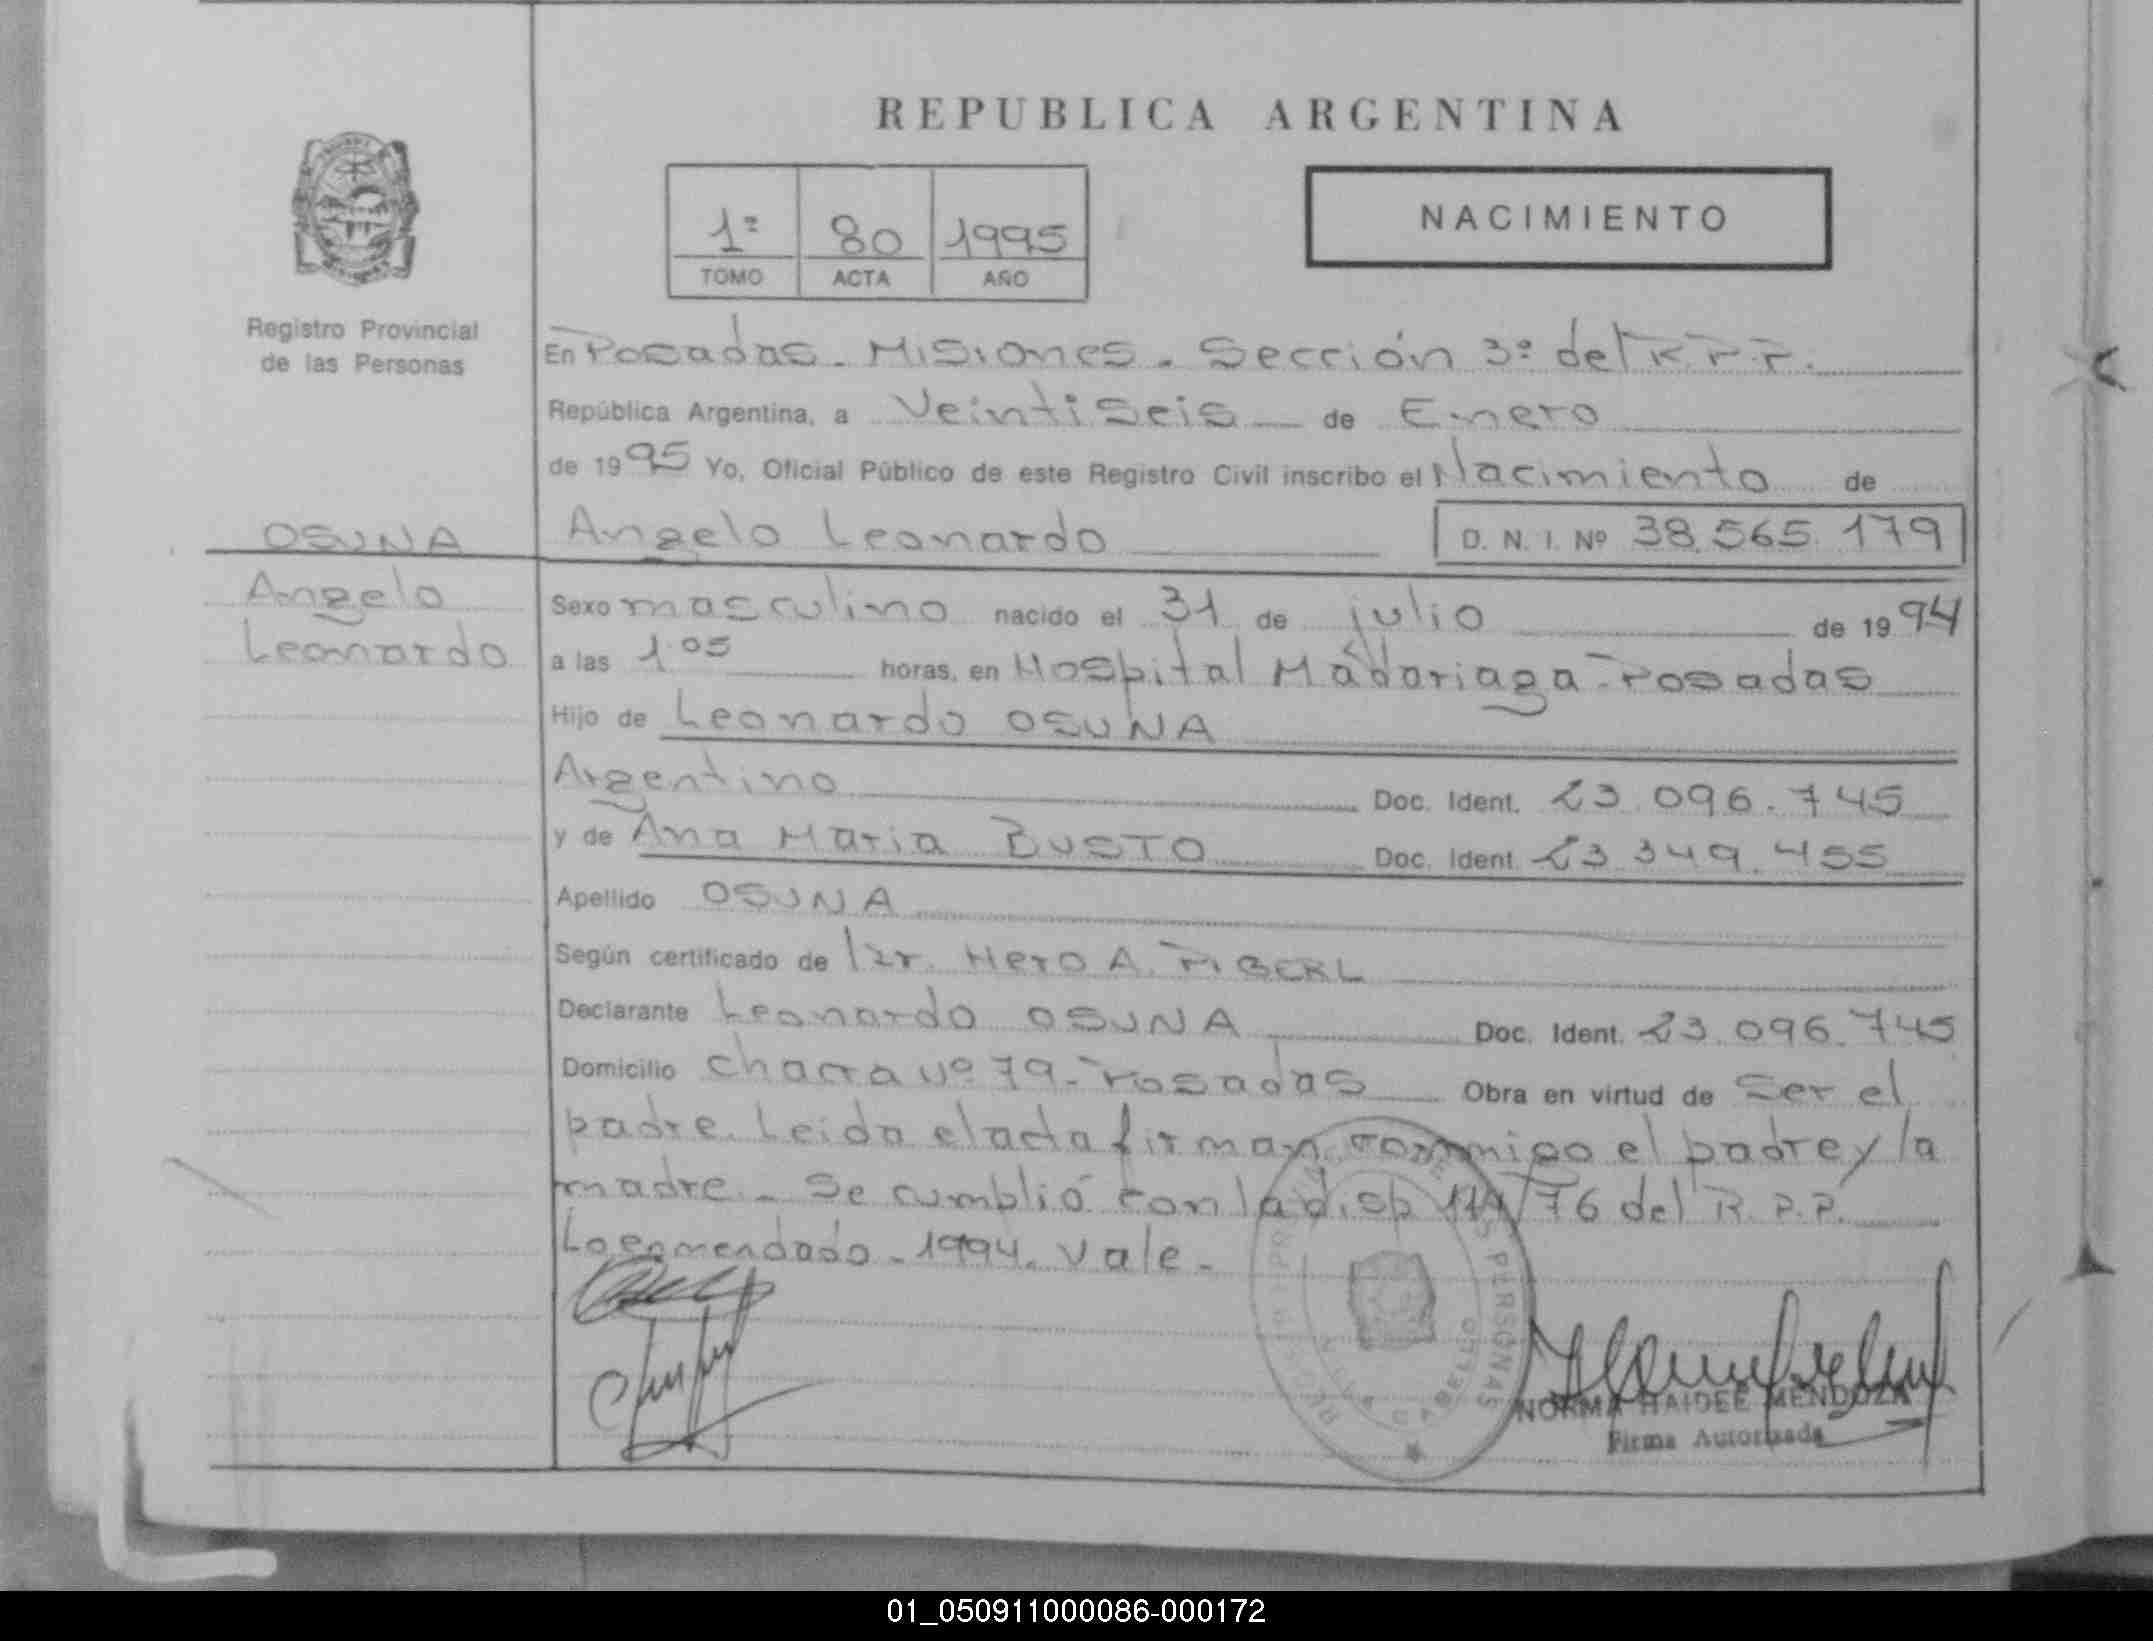 REPUBLICA ARGENTINA
1º 80 1995
TOMO ACTA AÑO
NACIMIENTO
Registro Provincial
de las Personas
En Posadas - Misiones - Sección 3º del R.P.P.
República Argentina, a Veintiseis de Enero
de 1995 Yo, Oficial Público de este Registro Civil inscribo el Nacimiento de
OSUNA
Angelo Leonardo
D. N. I. Nº 38.565.179
Angelo
Leonardo
Sexo masculino nacido el 31 de julio de 1994
a las 1.05 horas, en Hospital Madariaga - Posadas
Hijo de Leonardo OSUNA
Argentino Doc. Ident. 23.096.745
y de Ana Maria BUSTO Doc. Ident. 23.349.455
Apellido OSUNA
Según certificado de Dr. Hero A.
Declarante Leonardo OSUNA Doc. Ident. 23.096.745
Domicilio chacra Nº 79 - Posadas Obra en virtud de ser el
padre. Leida el acta firman conmigo el padre y la
madre - Se cumplió con la disp 114/76 del R.P.P.
Lo enmendado - 1994. Vale -
REGISTRO PERSONAS
VILLA CABELLO
NORMA HAIDEE MENDOZA
Firma Autorizada
01_050911000086-000172